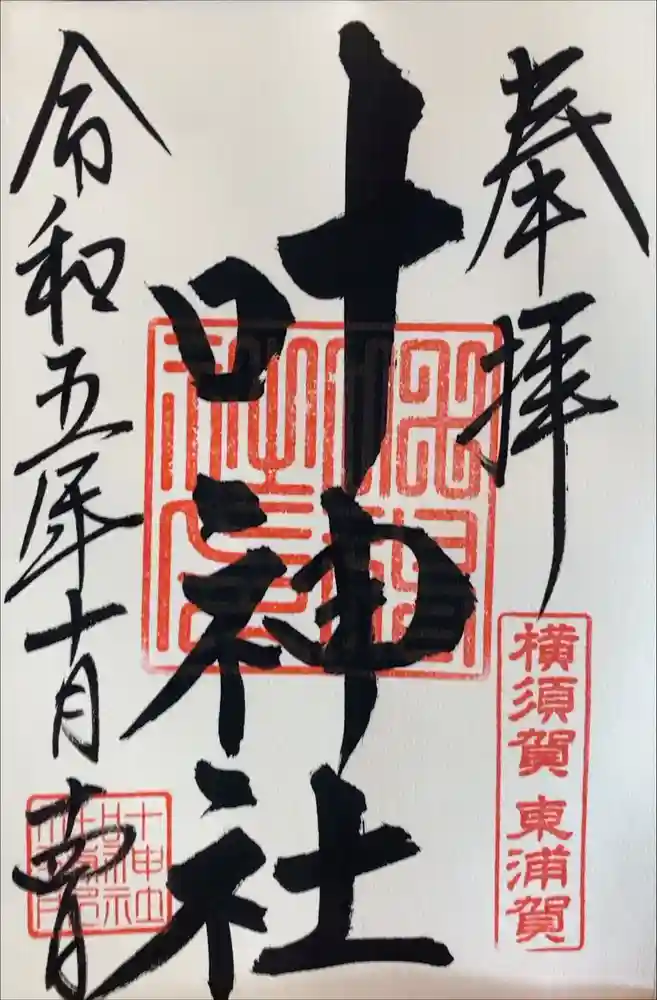 奉拝
横須賀 東浦賀
叶神社
令和五年十月吉日